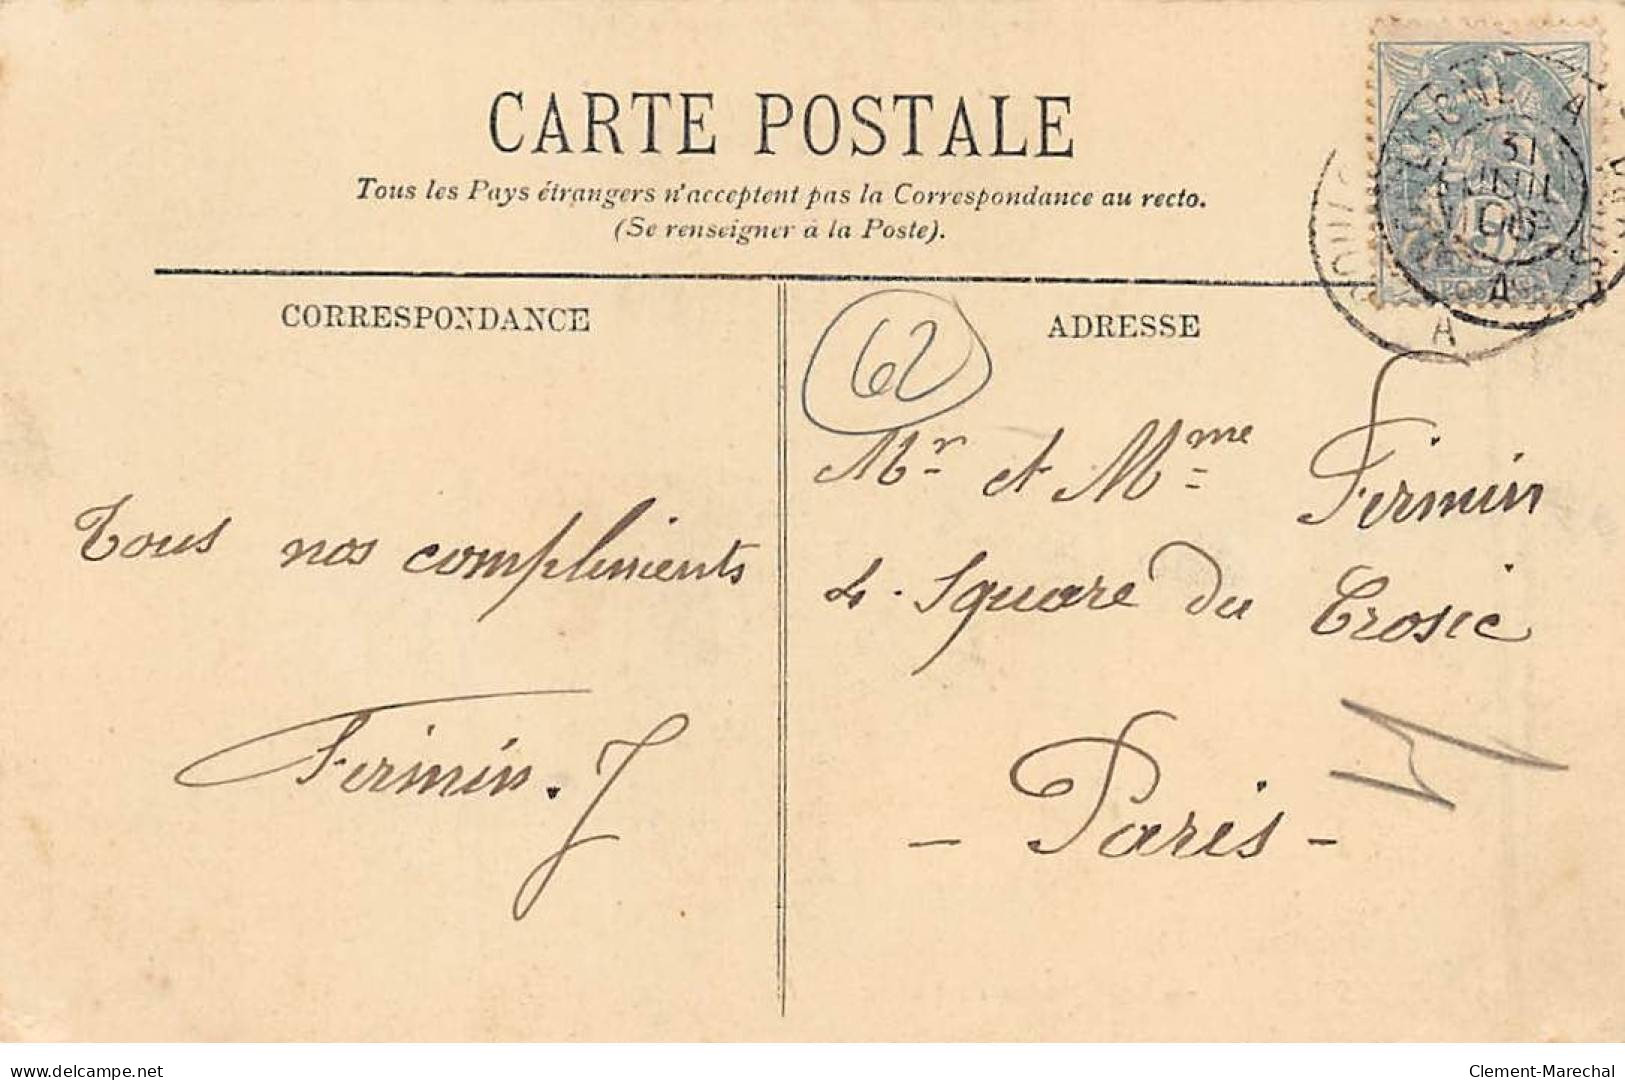 CARTE POSTALE
Tous les Pays étrangers n'acceptent pas la Correspondance au recto.
(Se renseigner à la Poste).
CORRESPONDANCE
ADRESSE
62
Tous nos compliments
Fermin. J
Mr et Mme Fermin
4. Square du Crosic
- Paris -
31
JUIL
06
A
A
www.delcampe.net
Clement-Marechal